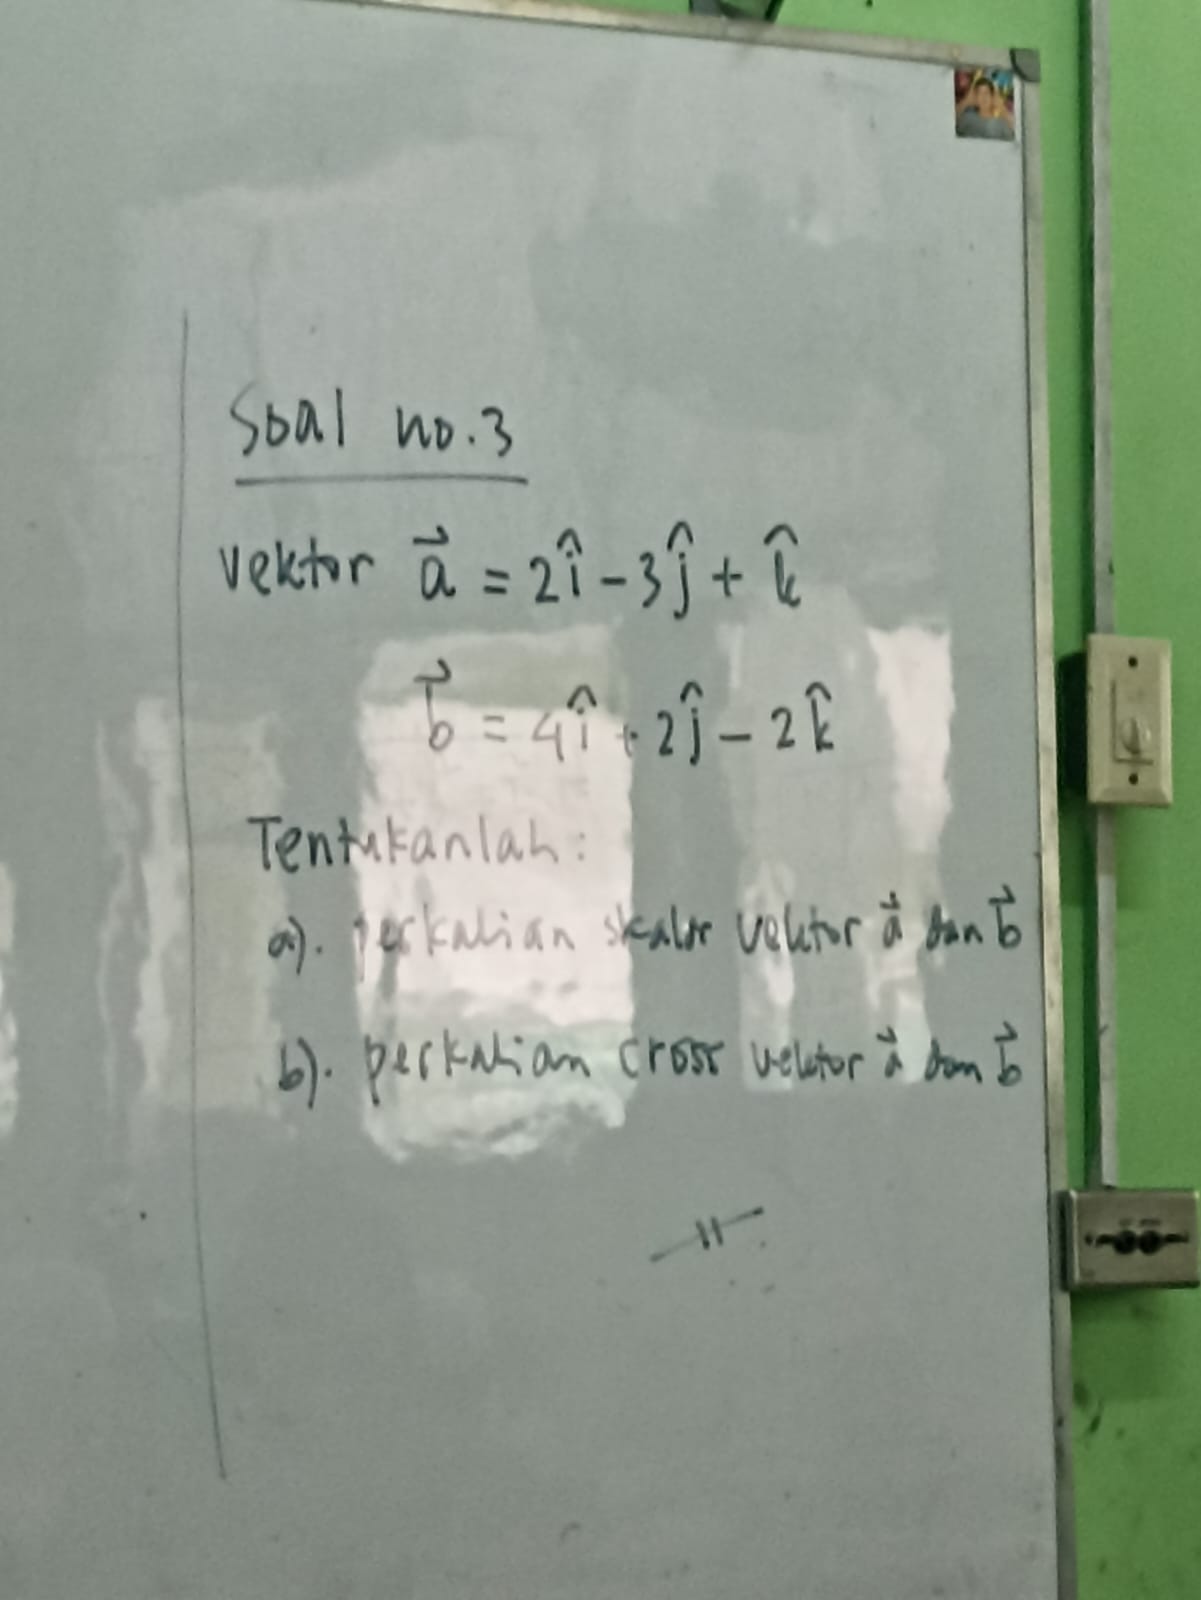 Soal no.3
Vektor a⃗ = 2î - 3ĵ + k̂
b⃗ = 4î + 2ĵ - 2k̂
Tentukanlah:
a). perkalian skalar vektor a⃗ dan b⃗
b). perkalian cross vektor a⃗ dan b⃗